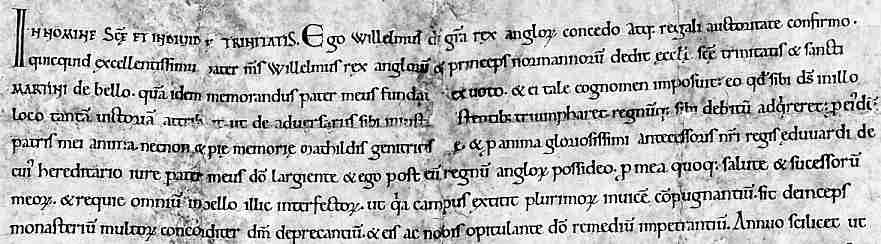 IN NOMINE SCE ET INDIVIDVE TRINITATIS. Ego Willelmus di gra rex angloꝝ concedo atq; regali auctoritate confirmo.
quicquid excellentissimus pater ms Willelmus rex angloꝝ & princeps normannoru dedit eccli sce trinitatis & sancti
MARTINI de bello. qua idem memorandus pater meus fundauit ex uoto. & ei tale cognomen imposuit: eo qd sibi ds in illo
loco tanta uictoria de aduersariis sibi iniuste triumpharet regnuq; sibi debitu adqreret:
patris mei anima. necnon & pie memorie Mathildis genitricis & p anima gloriosissimi antecessoris nri regis eduuardi de
cui hereditario iure pater meus do largiente & ego post eu regnu angloꝝ possideo. p mea quoq; salute & successoru
meoꝝ. & requie omniu in bello illic interfectoꝝ. ut qa campus extitit plurimoꝝ inuice copugnantiu: sic deinceps
monasteriu multoꝝ concorditer dm deprecantiu. & eis ac nobis opitulante do remediu impetrantiu. Annuo scilicet ut